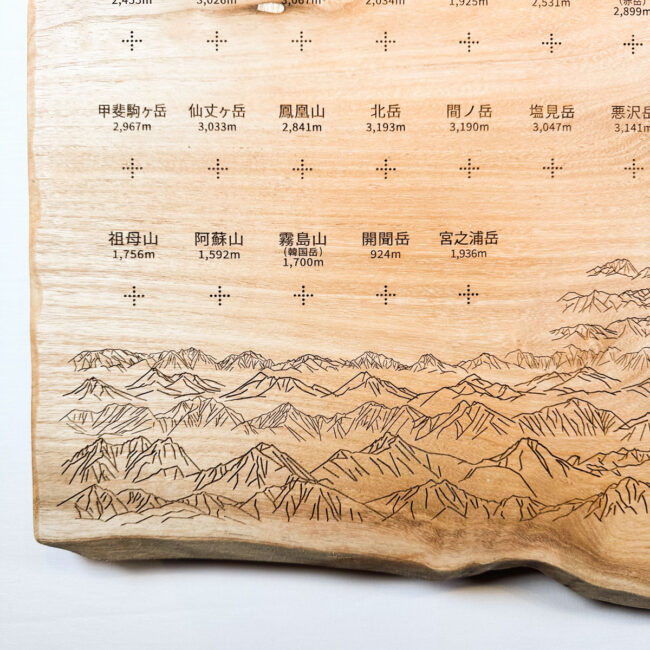 2,455m 3,026m 3,067m 2,034m 1,925m 2,531m (赤岳)
2,899m
甲斐駒ヶ岳 仙丈ヶ岳 鳳凰山 北岳 間ノ岳 塩見岳 悪沢岳
2,967m 3,033m 2,841m 3,193m 3,190m 3,047m 3,141m
祖母山 阿蘇山 霧島山 開聞岳 宮之浦岳
1,756m 1,592m (韓国岳) 924m 1,936m
1,700m